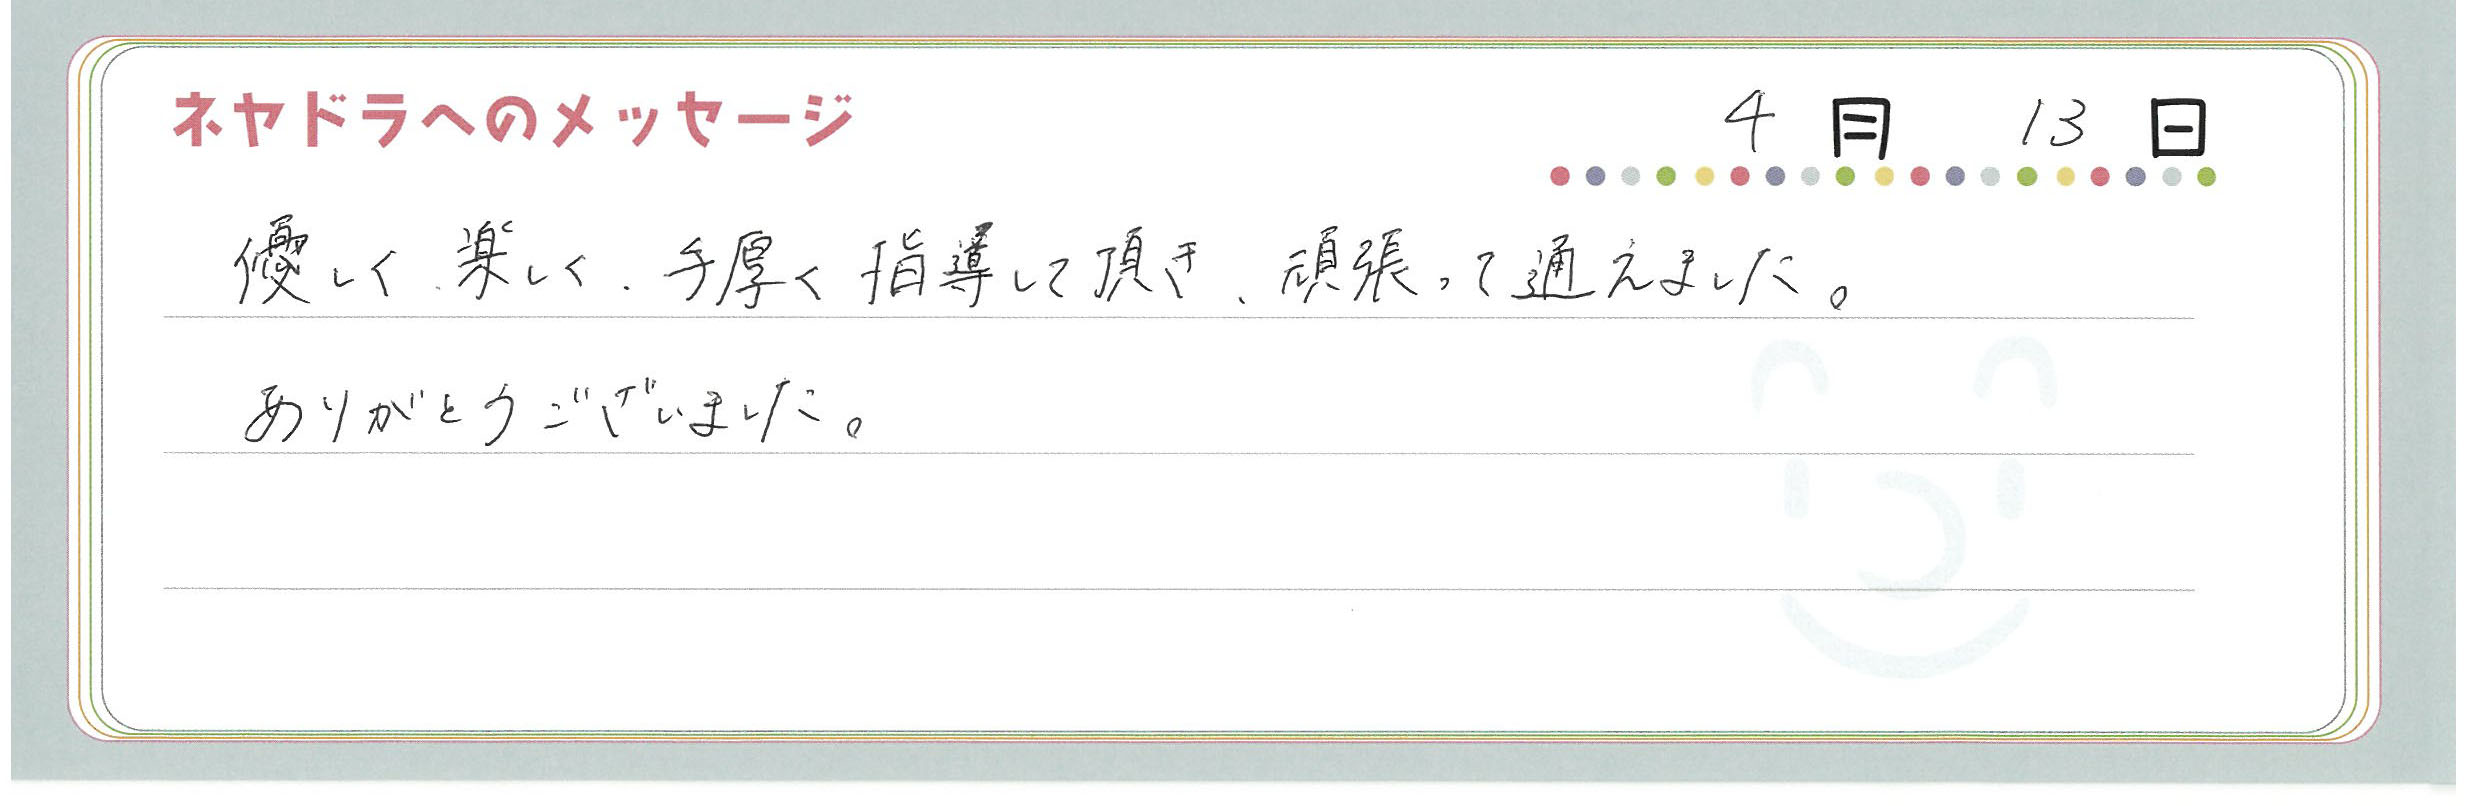 ネヤドラへのメッセージ
4月 13日
優しく、楽しく、手厚く指導して頂き、頑張って通えました。
ありがとうございました。